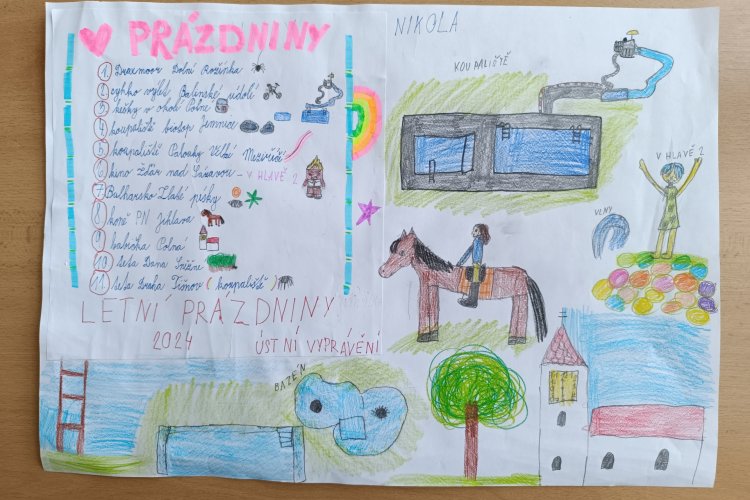 PRÁZDNINY
1. Draxmoor Dolní Rožínka
2. cyklo výlet Balinské údolí
3. kešky v okolí Polné
4 koupaliště biotop Jemnice
5 koupaliště Palouky Velké Meziříčí
6 kino Žďár nad Sázavou - V HLAVĚ 2
7 Bulharsko Zlaté písky
8 koně PN Jihlava
9 babička Polná
10 teta Dana Sněžné
11 teta Tišnov (koupaliště)
LETNÍ PRÁZDNINY
2024
ÚSTNÍ VYPRÁVĚNÍ
NIKOLA
KOUPALIŠTĚ
V HLAVĚ 2
VLNY
BAZÉN